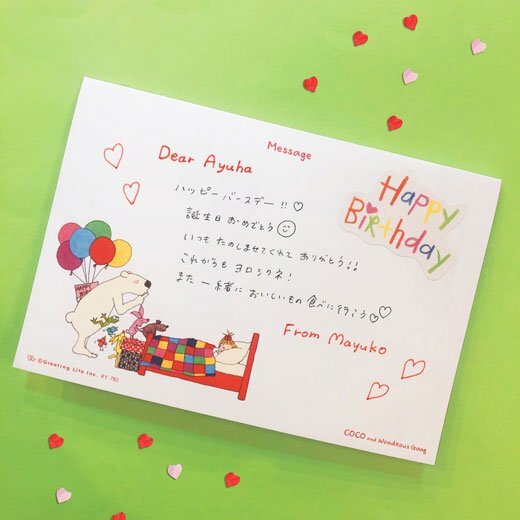 Message
Dear Ayuha
Happy
Birthday
ハッピーバースデー!!♡
誕生日おめでとう
いつもたのしませてくれてありがとう!!
これからもヨロシクネ!
また一緒においしいもの食べに行こう♡♡
From Mayuko
©Greeting Life Inc. XY-782
COCO and Wondrous Gang